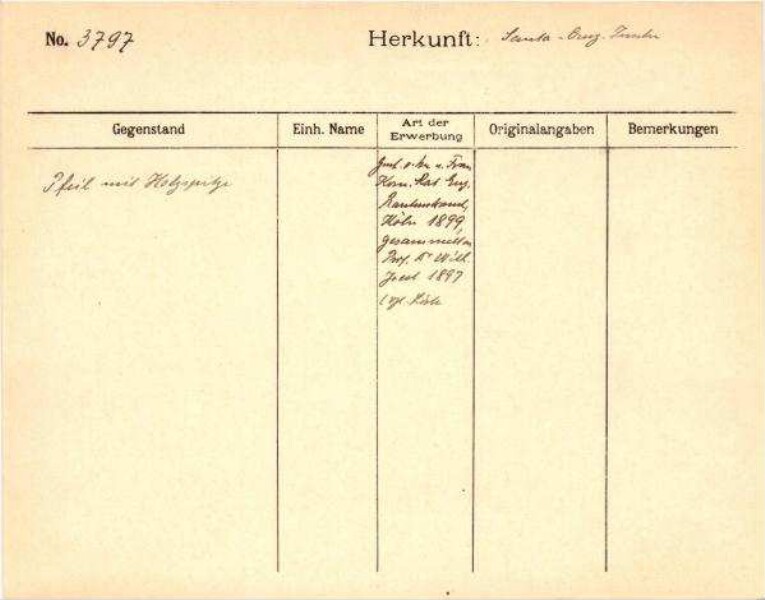 No. 3797
Herkunft: Santa-Cruz-Inseln
Gegenstand
Einh. Name
Art der
Erwerbung
Originalangaben
Bemerkungen
Pfeil mit Holzspitze
u. Frau
Kom. Rat Eug.
Rautenstrauch,
Köln 1899,
gesammelt v.
Prof. Dr Wilh.
Joest 1897
(vgl. Liste